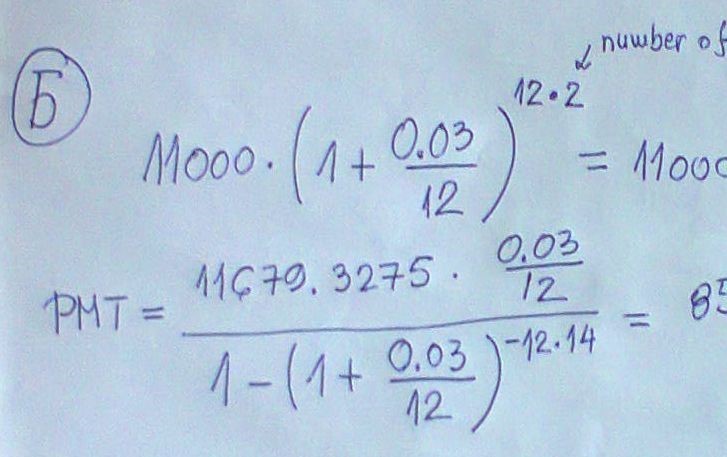 number of
Б
11000 · (1 + 0.03/12)^12·2 = 11000
PMT = 11679.3275 · 0.03/12 / 1 − (1 + 0.03/12)^−12·14 = 85